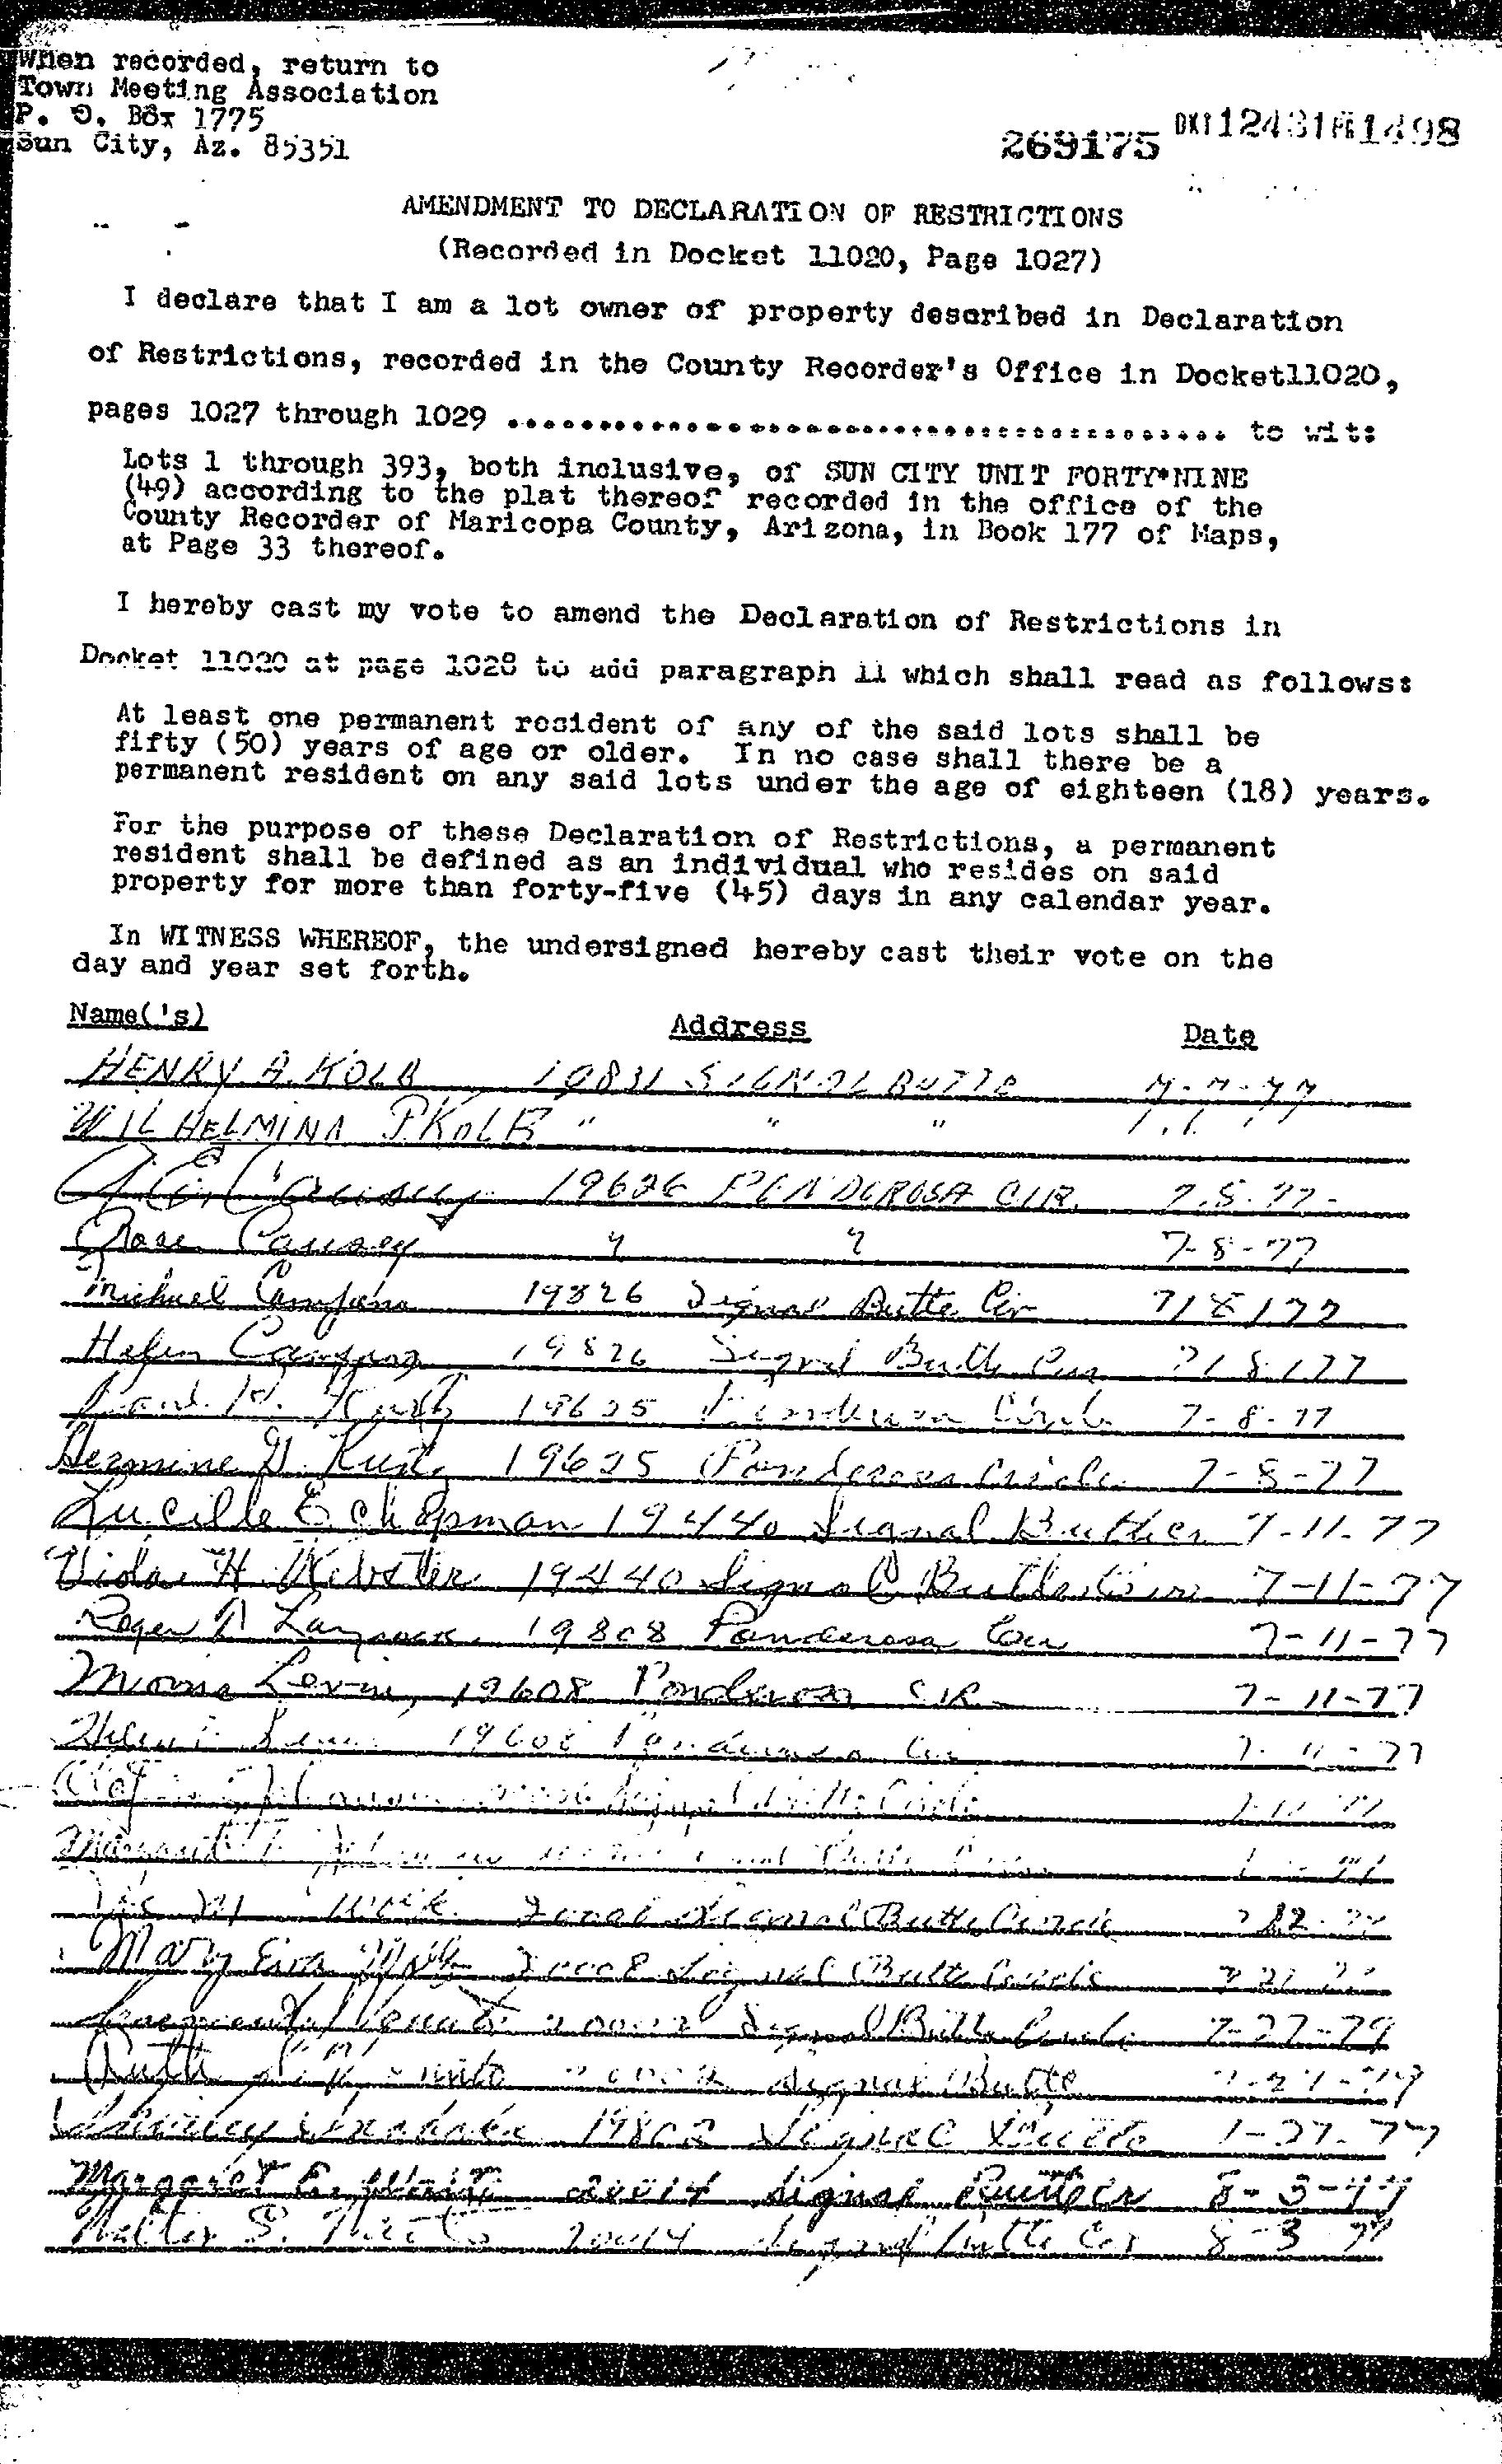 When recorded, return to
Town Meeting Association
P. O. Box 1775
Sun City, Az. 85351
269175 DKT 12431 PG 1498
AMENDMENT TO DECLARATION OF RESTRICTIONS
(Recorded in Docket 11020, Page 1027)
I declare that I am a lot owner of property described in Declaration
of Restrictions, recorded in the County Recorder's Office in Docket11020,
pages 1027 through 1029 .................................................. to wit:
Lots 1 through 393, both inclusive, of SUN CITY UNIT FORTY*NINE
(49) according to the plat thereof recorded in the office of the
County Recorder of Maricopa County, Arizona, in Book 177 of Maps,
at Page 33 thereof.
I hereby cast my vote to amend the Declaration of Restrictions in
Docket 11020 at page 1028 to add paragraph 11 which shall read as follows:
At least one permanent resident of any of the said lots shall be
fifty (50) years of age or older. In no case shall there be a
permanent resident on any said lots under the age of eighteen (18) years.
For the purpose of these Declaration of Restrictions, a permanent
resident shall be defined as an individual who resides on said
property for more than forty-five (45) days in any calendar year.
In WITNESS WHEREOF, the undersigned hereby cast their vote on the
day and year set forth.
Name('s) Address Date
HENRY A. KOLB 19831 SIGNAL BUTTE 7-7-77
WILHELMINA P. KOLB " " "
Causey 19626 PONDEROSA CIR. 7.8.77
Rose Causey " " 7-8-77
Michael Campana 19826 Signal Butte Cir 7/8/77
Helen Campana 19826 Signal Butte Cir 7/8/77
19625 Circle 7-8-77
Hermine 19625 Ponderosa Circle 7-8-77
Lucille E Chapman 19440 Signal Butte Cir 7-11-77
Vida H. Webster 19440 Signal Butte Cir 7-11-77
Roger 19808 Ponderosa Cir 7-11-77
Morris Levin, 19608 Ponderosa CIR 7-11-77
19608 Ponderosa Cir 7-11-77
Signal Butte Circle
Margaret Butte
Signal Butte Circle
Mary Signal Butte Circle
Signal Butte Circle 7-27-77
Ruth Signal Butte
Shirley 19802 Signal Butte
Margaret E. White 20014 Signal Butte Cir 8-3-77
Walter S. White 20014 Signal Butte Cir 8-3 77